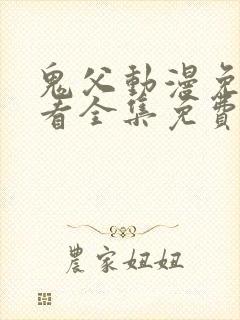 鬼父動漫免
看全集免費
農家妞妞